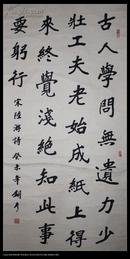 古人學問無遺力少
壯工夫老始成紙上得
來終覺淺絕知此事
要躬行 宋陸游詩 癸未年